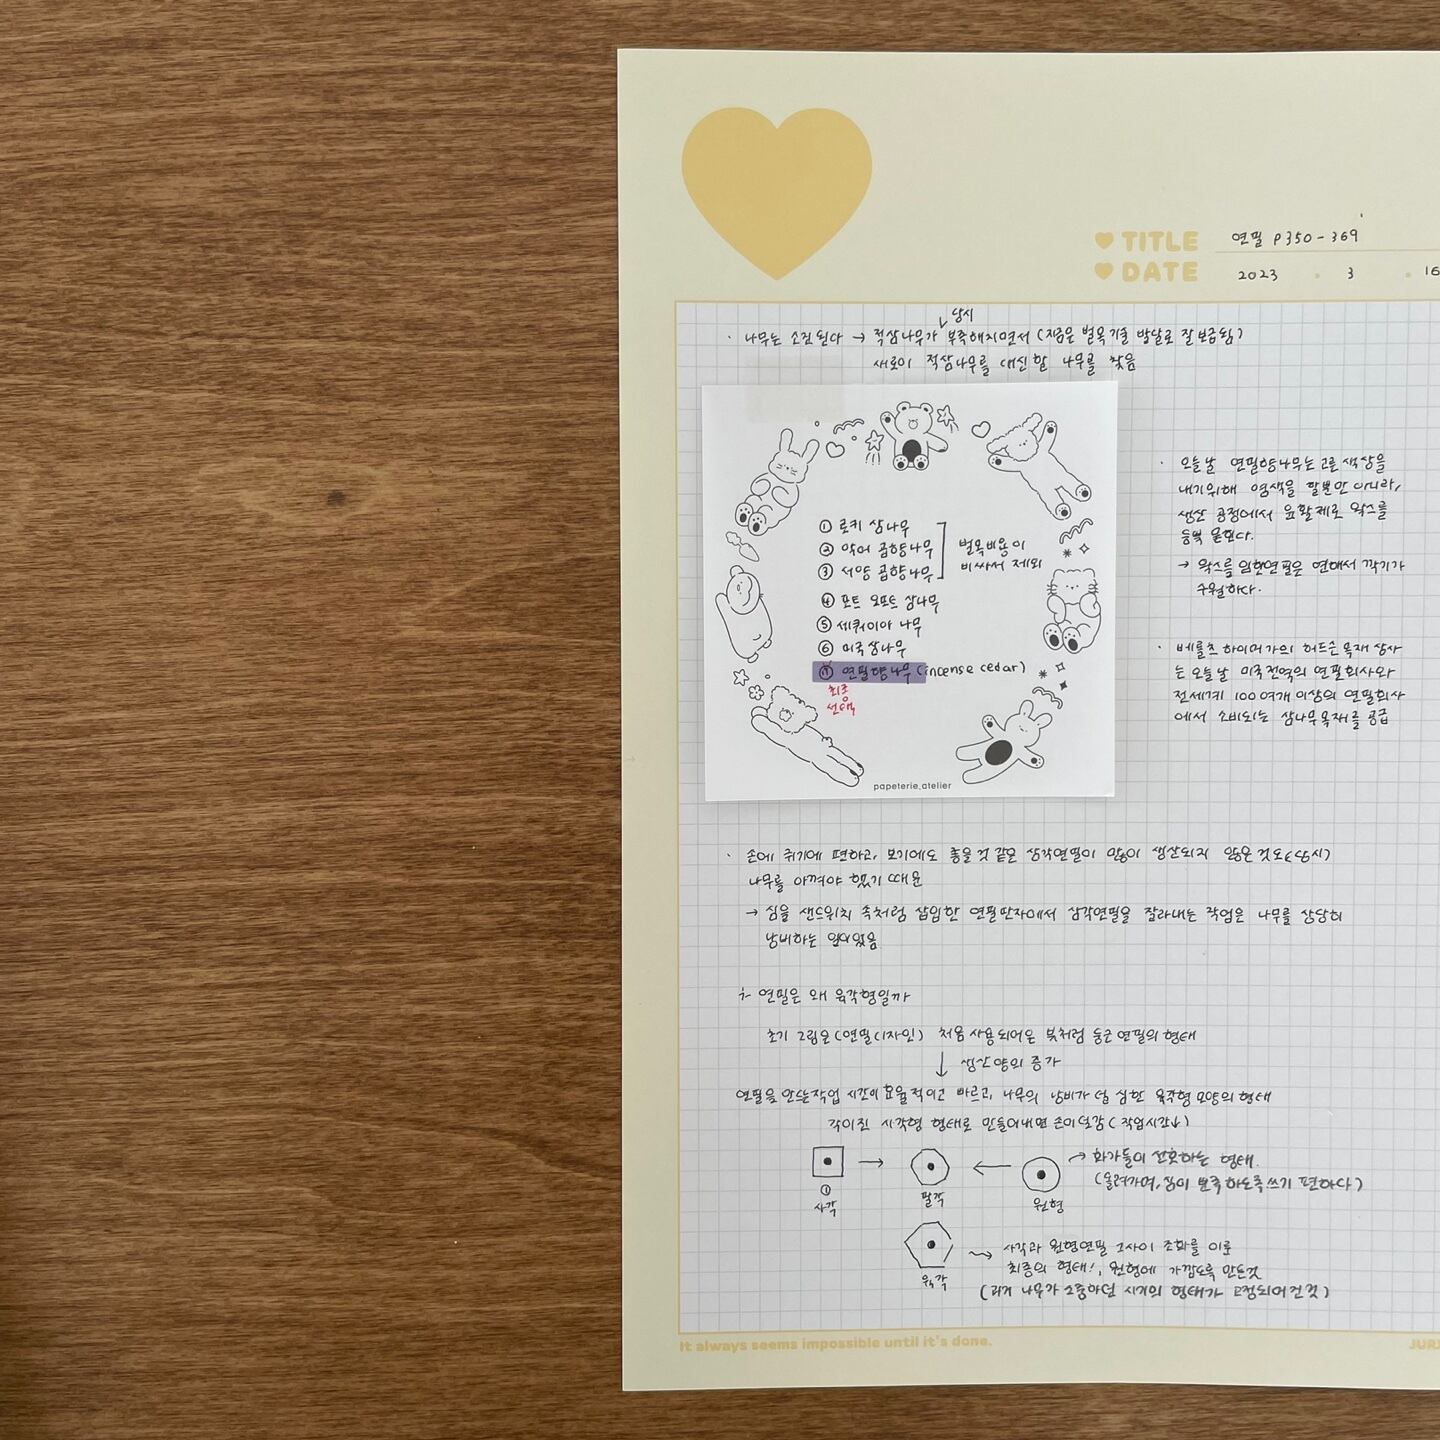 TITLE 연필 P350-369
DATE 2023 . 3 . 16
당시
· 나무는 소진된다 → 적삼나무가 부족해지면서 (지금은 벌목기술 발달로 잘 보급됨)
새로이 적삼나무를 대신할 나무를 찾음
① 로키 삼나무
② 악어 곱향나무
③ 서양 곱향나무
벌목비용이
비싸서 제외
④ 포트 오포드 삼나무
⑤ 세쿼이아 나무
⑥ 미국삼나무
⑦ 연필향나무 (incense cedar)
최종
선택
papeterie.atelier
· 오늘날 연필향나무는 고른 색상을
내기위해 염색을 할뿐만 아니라,
생산 공정에서 윤활제로 왁스를
듬뿍 묻힌다.
→ 왁스를 입힌연필은 연해서 깎기가
수월하다.
· 베를츠 하이머가의 허드슨 목재 상사
는 오늘날 미국전역의 연필회사와
전세계 100여개 이상의 연필회사
에서 소비되는 삼나무목재를 공급
· 손에 쥐기에 편하고, 보기에도 좋을것 같은 삼각연필이 많이 생산되지 않은 것도(당시)
나무를 아껴야 했기 때문
→ 심을 샌드위치 속처럼 삽입한 연필판자에서 삼각연필을 잘라내는 작업은 나무를 상당히
낭비하는 일이었음
연필은 왜 육각형일까
초기 그림은(연필디자인) 처음 사용되어온 붓처럼 둥근연필의 형태
↓ 생산양의 증가
연필을 만드는작업 시간이 효율적이고 빠르고, 나무의 낭비가 덜 심한 육각형 모양의 형태
각이진 사각형 형태로 만들어내면 손이덜감 (작업시간↓)
→ ← → 화가들이 선호하는 형태.
① 사각 팔각 원형
(돌려가며, 심이 뾰족하도록쓰기 편하다)
육각
사각과 원형연필 그사이 조화를 이룬
최종의 형태!, 원형에 가깝도록 만든것
(과거 나무가 소중하던 시기의 형태가 고정되어진것)
It always seems impossible until it's done.